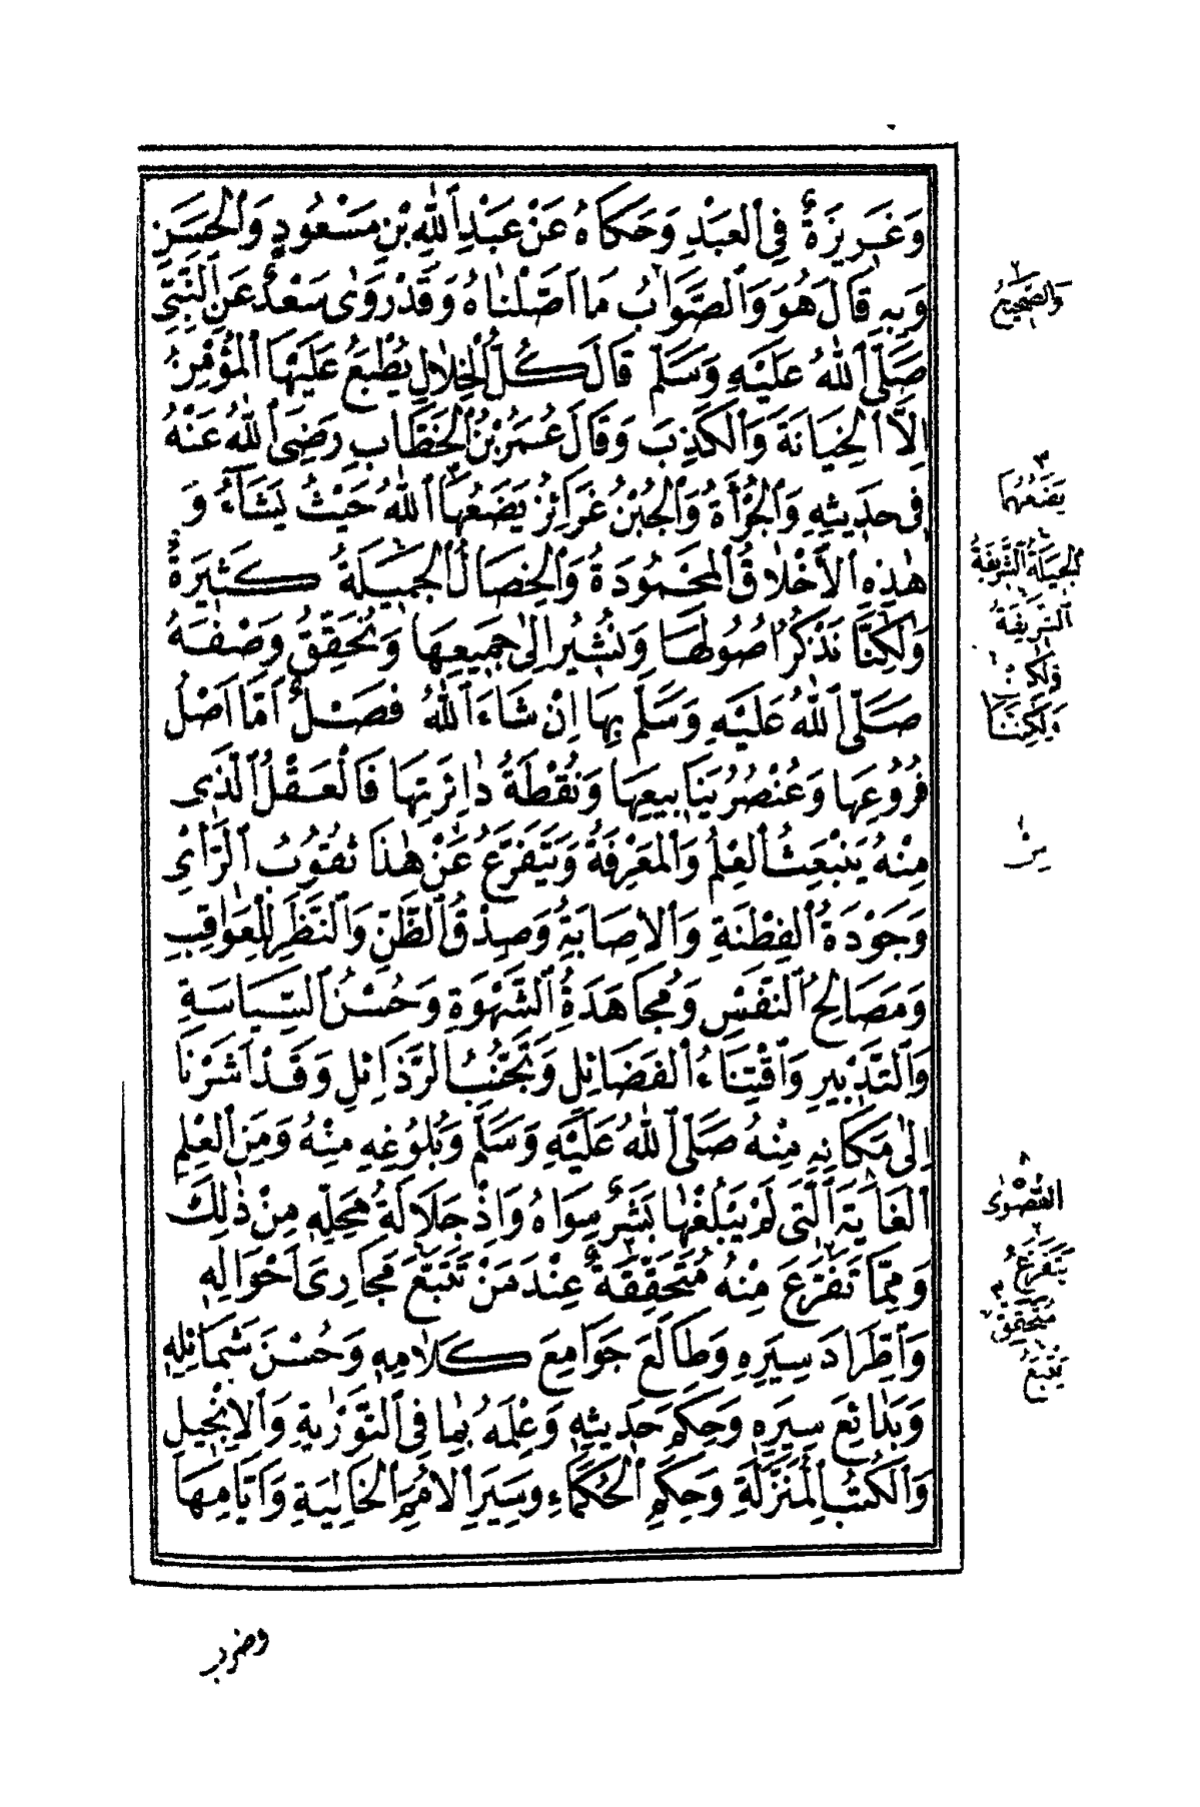 وَغَرِيزَةٌ فِي ٱلْعَبْدِ وَحَكَاهُ عَنْ عَبْدِ ٱللّٰهِ بْنِ مَسْعُودٍ وَٱلْحَسَنِ
وَبِهِ قَالَ هُوَ وَٱلصَّوَابُ مَا اَصَّلْنَاهُ وَقَدْ رَوٰى سَعْدٌ عَنِ ٱلنَّبِيِّ
صَلَّى ٱللّٰهُ عَلَيْهِ وَسَلَّمَ قَالَ كُلُّ ٱلْخِلَالِ يُطْبَعُ عَلَيْهَا ٱلْمُؤْمِنُ
اِلَّا ٱلْخِيَانَةَ وَٱلْكَذِبَ وَقَالَ عُمَرُ بْنُ ٱلْخَطَّابِ رَضِيَ ٱللّٰهُ عَنْهُ
فِي حَدِيثِهِ وَٱلْجُرْأَةُ وَٱلْجُبْنُ غَرَائِزُ يَضَعُهَا ٱللّٰهُ حَيْثُ يَشَآءُ وَ
هٰذِهِ ٱلْأَخْلَاقُ ٱلْمَحْمُودَةُ وَٱلْخِصَالُ ٱلْجَمِيلَةُ كَثِيرَةٌ
وَلٰكِنَّا نَذْكُرُ اُصُولَهَا وَنُشِيرُ اِلٰى جَمِيعِهَا وَنُحَقِّقُ وَصْفَهُ
صَلَّى ٱللّٰهُ عَلَيْهِ وَسَلَّمَ بِهَا اِنْ شَاءَ ٱللّٰهُ فَصْلٌ اَمَّا اَصْلُ
فُرُوعِهَا وَعُنْصُرُ يَنَابِيعِهَا وَنُقْطَةُ دَائِرَتِهَا فَالْعَقْلُ ٱلَّذِي
مِنْهُ يَنْبَعِثُ ٱلْعِلْمُ وَٱلْمَعْرِفَةُ وَيَتَفَرَّعُ عَنْ هٰذَا ثُقُوبُ ٱلرَّأْيِ
وَجَوْدَةُ ٱلْفِطْنَةِ وَٱلْاِصَابَةُ وَصِدْقُ ٱلظَّنِّ وَٱلنَّظَرُ لِلْعَوَاقِبِ
وَمَصَالِحُ ٱلنَّفْسِ وَمُجَاهَدَةُ ٱلشَّهْوَةِ وَحُسْنُ ٱلسِّيَاسَةِ
وَٱلتَّدْبِيرِ وَٱقْتِنَاءُ ٱلْفَضَائِلِ وَتَجَنُّبُ ٱلرَّذَائِلِ وَقَدْ اَشَرْنَا
اِلٰى مَكَانِهِ مِنْهُ صَلَّى ٱللّٰهُ عَلَيْهِ وَسَلَّمَ وَبُلُوغِهِ مِنْهُ وَمِنَ ٱلْعِلْمِ
ٱلْغَايَةَ ٱلَّتِي لَمْ يَبْلُغْهَا بَشَرٌ سِوَاهُ وَاِذْ جَلَالَةُ مَحَلِّهِ مِنْ ذٰلِكَ
وَمِمَّا تَفَرَّعَ مِنْهُ مُتَحَقِّقَةٌ عِنْدَ مَنْ تَتَبَّعَ مَجَارِىَ اَحْوَالِهِ
وَٱطِّرَادَ سِيَرِهِ وَطَالَعَ جَوَامِعَ كَلَامِهِ وَحُسْنَ شَمَائِلِهِ
وَبَدَائِعَ سِيَرِهِ وَحِكَمَ حَدِيثِهِ وَعِلْمَهُ بِمَا فِي ٱلتَّوْرٰيةِ وَٱلْاِنْجِيلِ
وَٱلْكُتُبِ ٱلْمُنَزَّلَةِ وَحِكَمِ ٱلْحُكَمَاءِ وَسِيَرِ ٱلْاُمَمِ ٱلْخَالِيَةِ وَاَيَّامِهَا
وَالصَّحِيحُ
يَضَعُهُمَا
ٱلْجَمِيلَةُ ٱلشَّرِيفَةُ
ٱلشَّرِيفَةُ
وَلٰكِنَّنَا
مِنْ
ٱلْقُصْوٰى
يَتَفَرَّعُ
مُتَحَقِّقٌ
يَتَّبِعُ
وضرب